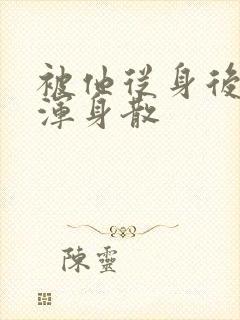 被他從身後
渾身散
陳靈